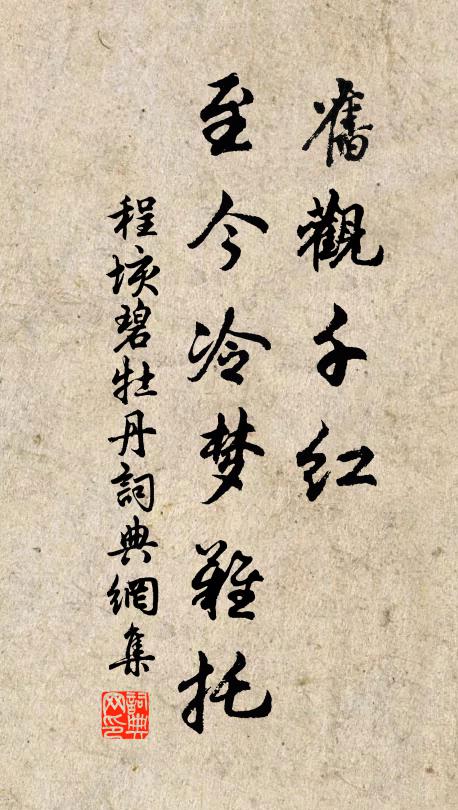 舊觀千红
至今冷梦難托
程垓碧牡丹詞典網集
詞典网印